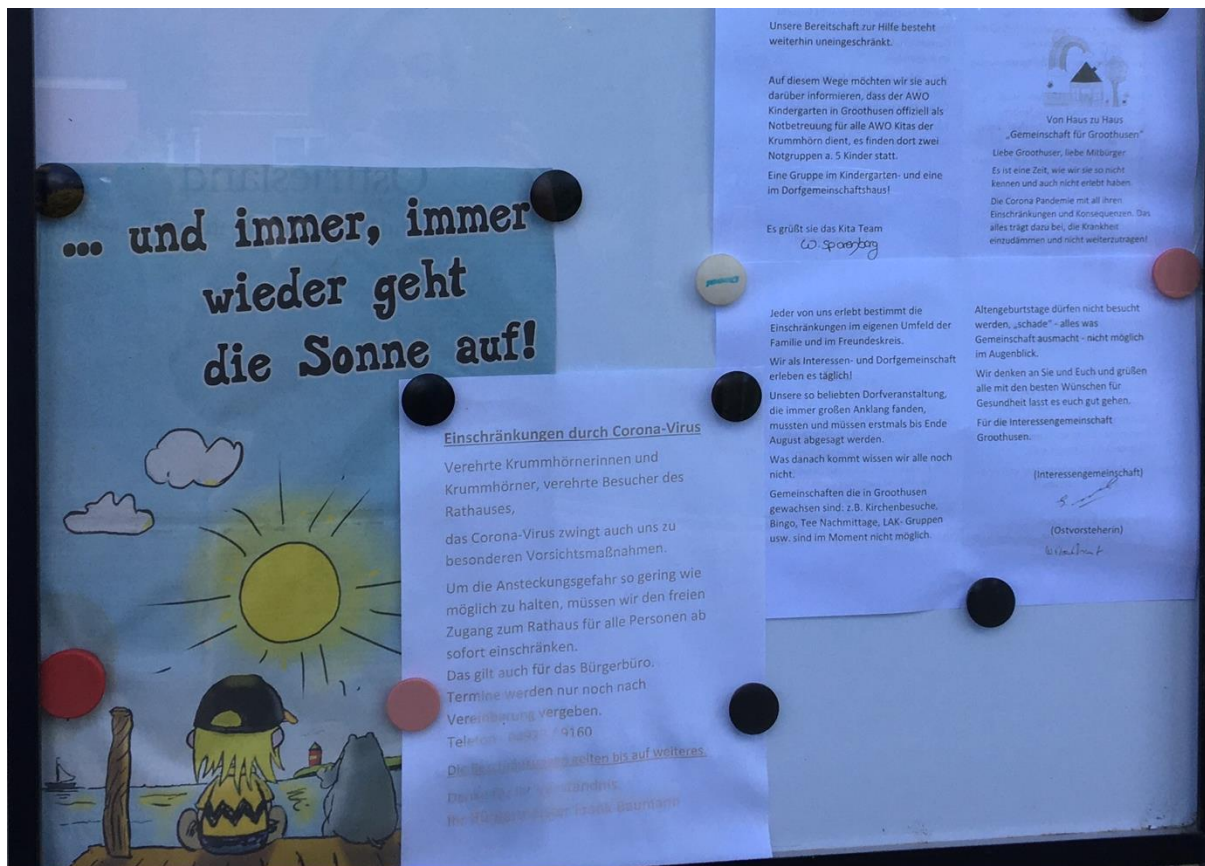 ... und immer, immer
wieder geht
die Sonne auf!
Einschränkungen durch Corona-Virus
Verehrte Krummhörnerinnen und
Krummhörner, verehrte Besucher des
Rathauses,
das Corona-Virus zwingt auch uns zu
besonderen Vorsichtsmaßnahmen.
Um die Ansteckungsgefahr so gering wie
möglich zu halten, müssen wir den freien
Zugang zum Rathaus für alle Personen ab
sofort einschränken.
Das gilt auch für das Bürgerbüro.
Termine werden nur noch nach
Vereinbarung vergeben.
9160
gelten bis auf weiteres.
Frank Baumann
Unsere Bereitschaft zur Hilfe besteht
weiterhin uneingeschränkt.
Auf diesem Wege möchten wir sie auch
darüber informieren, dass der AWO
Kindergarten in Groothusen offiziell als
Notbetreuung für alle AWO Kitas der
Krummhörn dient, es finden dort zwei
Notgruppen a. 5 Kinder statt.
Eine Gruppe im Kindergarten- und eine
im Dorfgemeinschaftshaus!
Es grüßt sie das Kita Team
Von Haus zu Haus
„Gemeinschaft für Groothusen"
Liebe Groothuser, liebe Mitbürger
Es ist eine Zeit, wie wir sie so nicht
kennen und auch nicht erlebt haben.
Die Corona Pandemie mit all ihren
Einschränkungen und Konsequenzen. Das
alles trägt dazu bei, die Krankheit
einzudämmen und nicht weiterzutragen!
Jeder von uns erlebt bestimmt die
Einschränkungen im eigenen Umfeld der
Familie und im Freundeskreis.
Wir als Interessen- und Dorfgemeinschaft
erleben es täglich!
Unsere so beliebten Dorfveranstaltung,
die immer großen Anklang fanden,
mussten und müssen erstmals bis Ende
August abgesagt werden.
Was danach kommt wissen wir alle noch
nicht.
Gemeinschaften die in Groothusen
gewachsen sind: z.B. Kirchenbesuche,
Bingo, Tee Nachmittage, LAK- Gruppen
usw. sind im Moment nicht möglich.
Altengeburtstage dürfen nicht besucht
werden, „schade" - alles was
Gemeinschaft ausmacht - nicht möglich
im Augenblick.
Wir denken an Sie und Euch und grüßen
alle mit den besten Wünschen für
Gesundheit lasst es euch gut gehen.
Für die Interessengemeinschaft
Groothusen.
(Interessengemeinschaft)
(Ostvorsteherin)